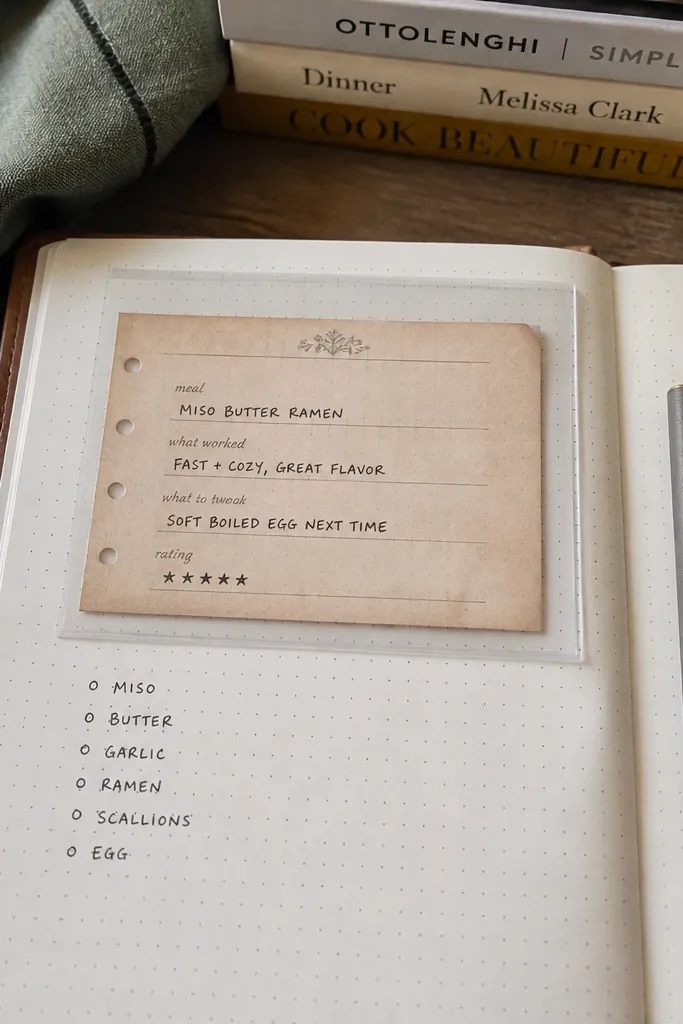 OTTOLENGHI | SIMPL
Dinner Melissa Clark
COOK BEAUTIFUL
meal
MISO BUTTER RAMEN
what worked
FAST + COZY, GREAT FLAVOR
what to tweak
SOFT BOILED EGG NEXT TIME
rating
★★★★★
MISO
BUTTER
GARLIC
RAMEN
SCALLIONS
EGG